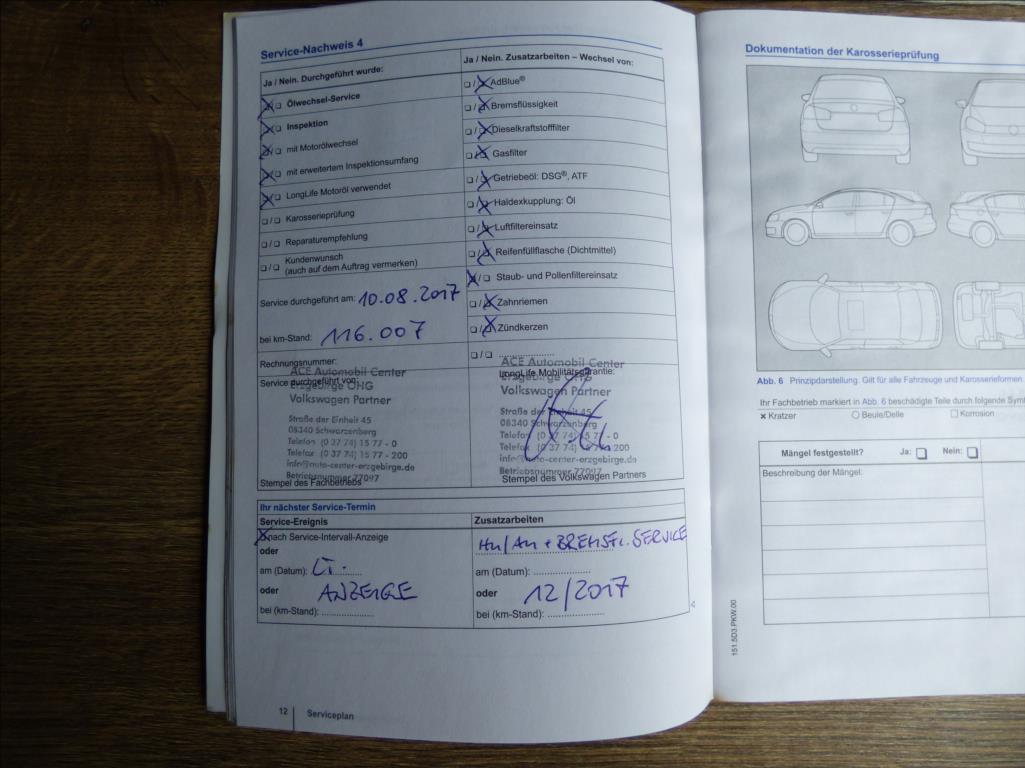 Service-Nachweis 4
Ja / Nein. Durchgeführt wurde:
Ölwechsel-Service
Inspektion
mit Motorölwechsel
mit erweitertem Inspektionsumfang
LongLife Motoröl verwendet
Karosserieprüfung
Reparaturempfehlung
Kundenwunsch
(auch auf dem Auftrag vermerken)
Service durchgeführt am: 10.08.2017
bei km-Stand: 116.007
Rechnungsnummer:
Service durchgeführt von:
ACE Automobil Center
Erzgebirge OHG
Volkswagen Partner
Straße der Einheit 45
08340 Schwarzenberg
Telefon (0 37 74) 15 77 - 0
Telefax (0 37 74) 15 77 - 200
info@auto-center-erzgebirge.de
Betriebsnummer 77097
Stempel des Fachbetriebs
Ja / Nein. Zusatzarbeiten – Wechsel von:
AdBlue®
Bremsflüssigkeit
Dieselkraftstofffilter
Gasfilter
Getriebeöl: DSG®, ATF
Haldexkupplung: Öl
Luftfiltereinsatz
Reifenfüllflasche (Dichtmittel)
Staub- und Pollenfiltereinsatz
Zahnriemen
Zündkerzen
LongLife Mobilitätsgarantie:
ACE Automobil Center
Erzgebirge OHG
Volkswagen Partner
Straße der Einheit 45
08340 Schwarzenberg
Telefon (0 37 74) 15 77 - 0
Telefax (0 37 74) 15 77 - 200
info@auto-center-erzgebirge.de
Betriebsnummer 77097
Stempel des Volkswagen Partners
Ihr nächster Service-Termin
Service-Ereignis
nach Service-Intervall-Anzeige
oder
am (Datum): LT.
oder ANZEIGE
bei (km-Stand):
Zusatzarbeiten
HU/AU + BREMSFL. SERVICE
am (Datum):
oder 12/2017
bei (km-Stand):
12 Serviceplan
Dokumentation der Karosserieprüfung
Abb. 6 Prinzipdarstellung. Gilt für alle Fahrzeuge und Karosserieformen
Ihr Fachbetrieb markiert in Abb. 6 beschädigte Teile durch folgende
Kratzer Beule/Delle Korrosion
Mängel festgestellt? Ja: Nein:
Beschreibung der Mängel:
151.5D3.PKW.00